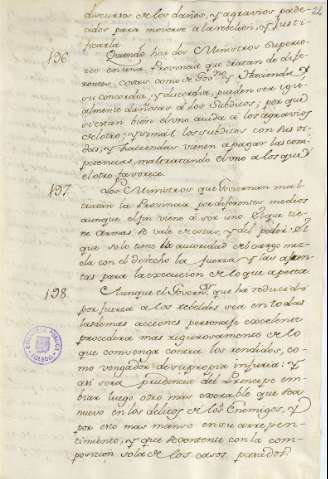 22
discurso de los daños, y agravios pade-
cidos para moverse a la rebelion, y Justi-
ficarla
196 Quando hai dos Ministros Superio-
res en una Provincia que tratan de dife-
rentes cosas como de Gov.no y Hacienda y
su concordia, y discordia, pueden ser igu-
almente dañosas a los Subditos; por que
si estan bien el uno aiuda a los agravios
del otro; y si mal los subditos con sus vi-
das, y haciendas vienen a pagar las com-
petencias, maltratando el uno a los que
el otro favorece.
197 Los Ministros que goviernan mal
tratan la Provincia por diferentes medios
aunque el fin viene a ser uno. El que tie-
ne Armas se vale de estas, y del poder. El
que solo tiene la autoridad del cargo mez-
cla con el derecho la fuerza y las
para la execucion de lo que apetece
198 Aunque el Govern.or que ha reducido
por fuerza a los rebeldes sea en todas
las demas acciones personage excelente
procederá mas rigurosamente de lo
que convenga contra los rendidos, co-
mo vengador de su propia injuria: y
asi será prudencia del Principe em-
biar luego otro mas exorable que sea
nuevo en los delitos de los Enemigos, y
por esto mas manso en su arrepen-
timiento, y que se contente con la com-
posicion sola de los casos pasados